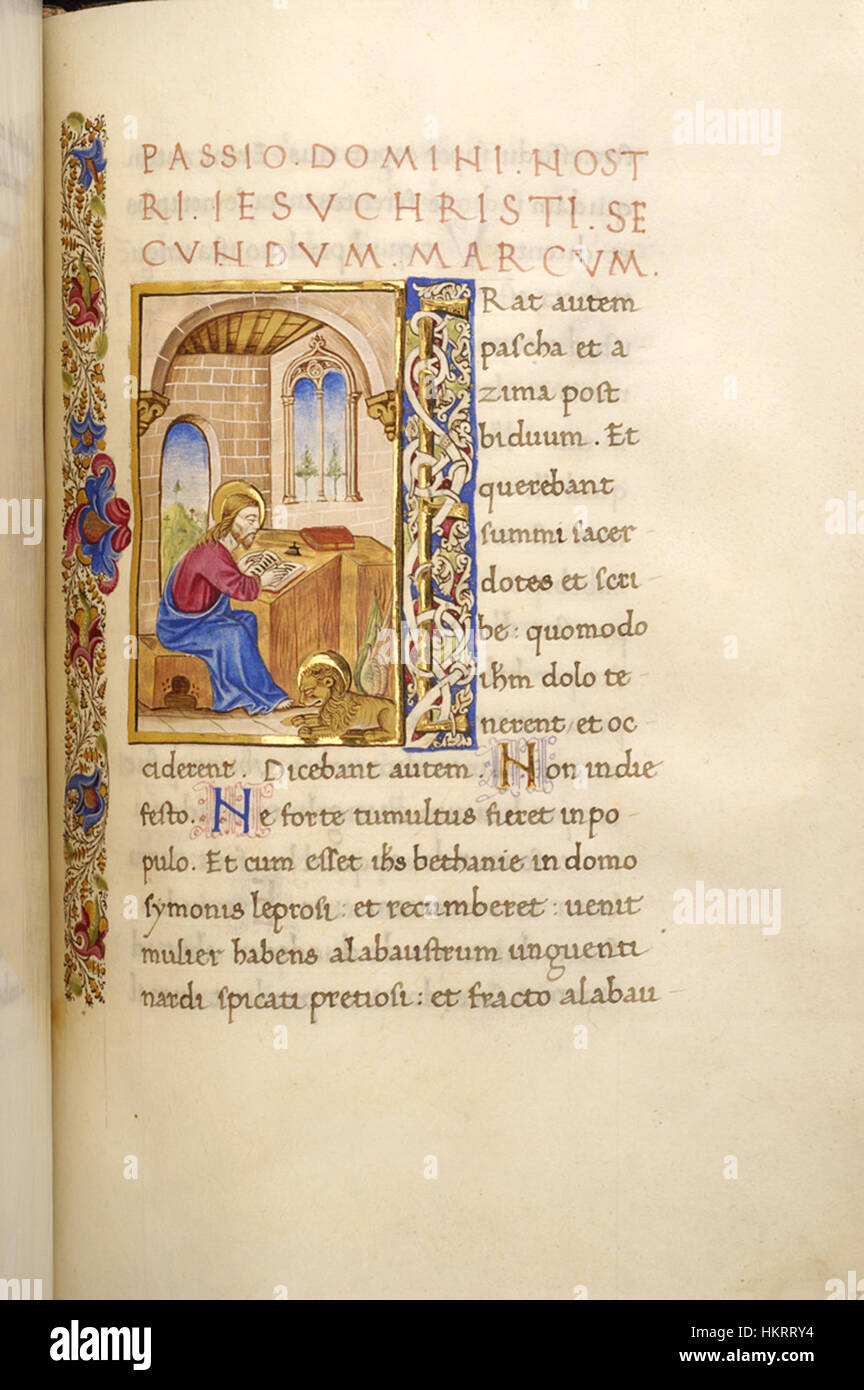 PASSIO. DOMINI. NOST
RI. IESV CHRISTI. SE
CVNDVM. MARCVM.
ERat autem
pascha et a
zima post
biduum. Et
querebant
summi sacer
dotes et scri
be: quomodo
ihm dolo te
nerent et oc
ciderent. Dicebant autem. Non in die
festo. Ne forte tumultus fieret in po
pulo. Et cum esset ihs bethanie in domo
symonis leprosi: et recumberet: uenit
mulier habens alabaustrum unguenti
nardi spicati pretiosi: et fracto alabau
alamy
Image ID: HKRRY4
www.alamy.com